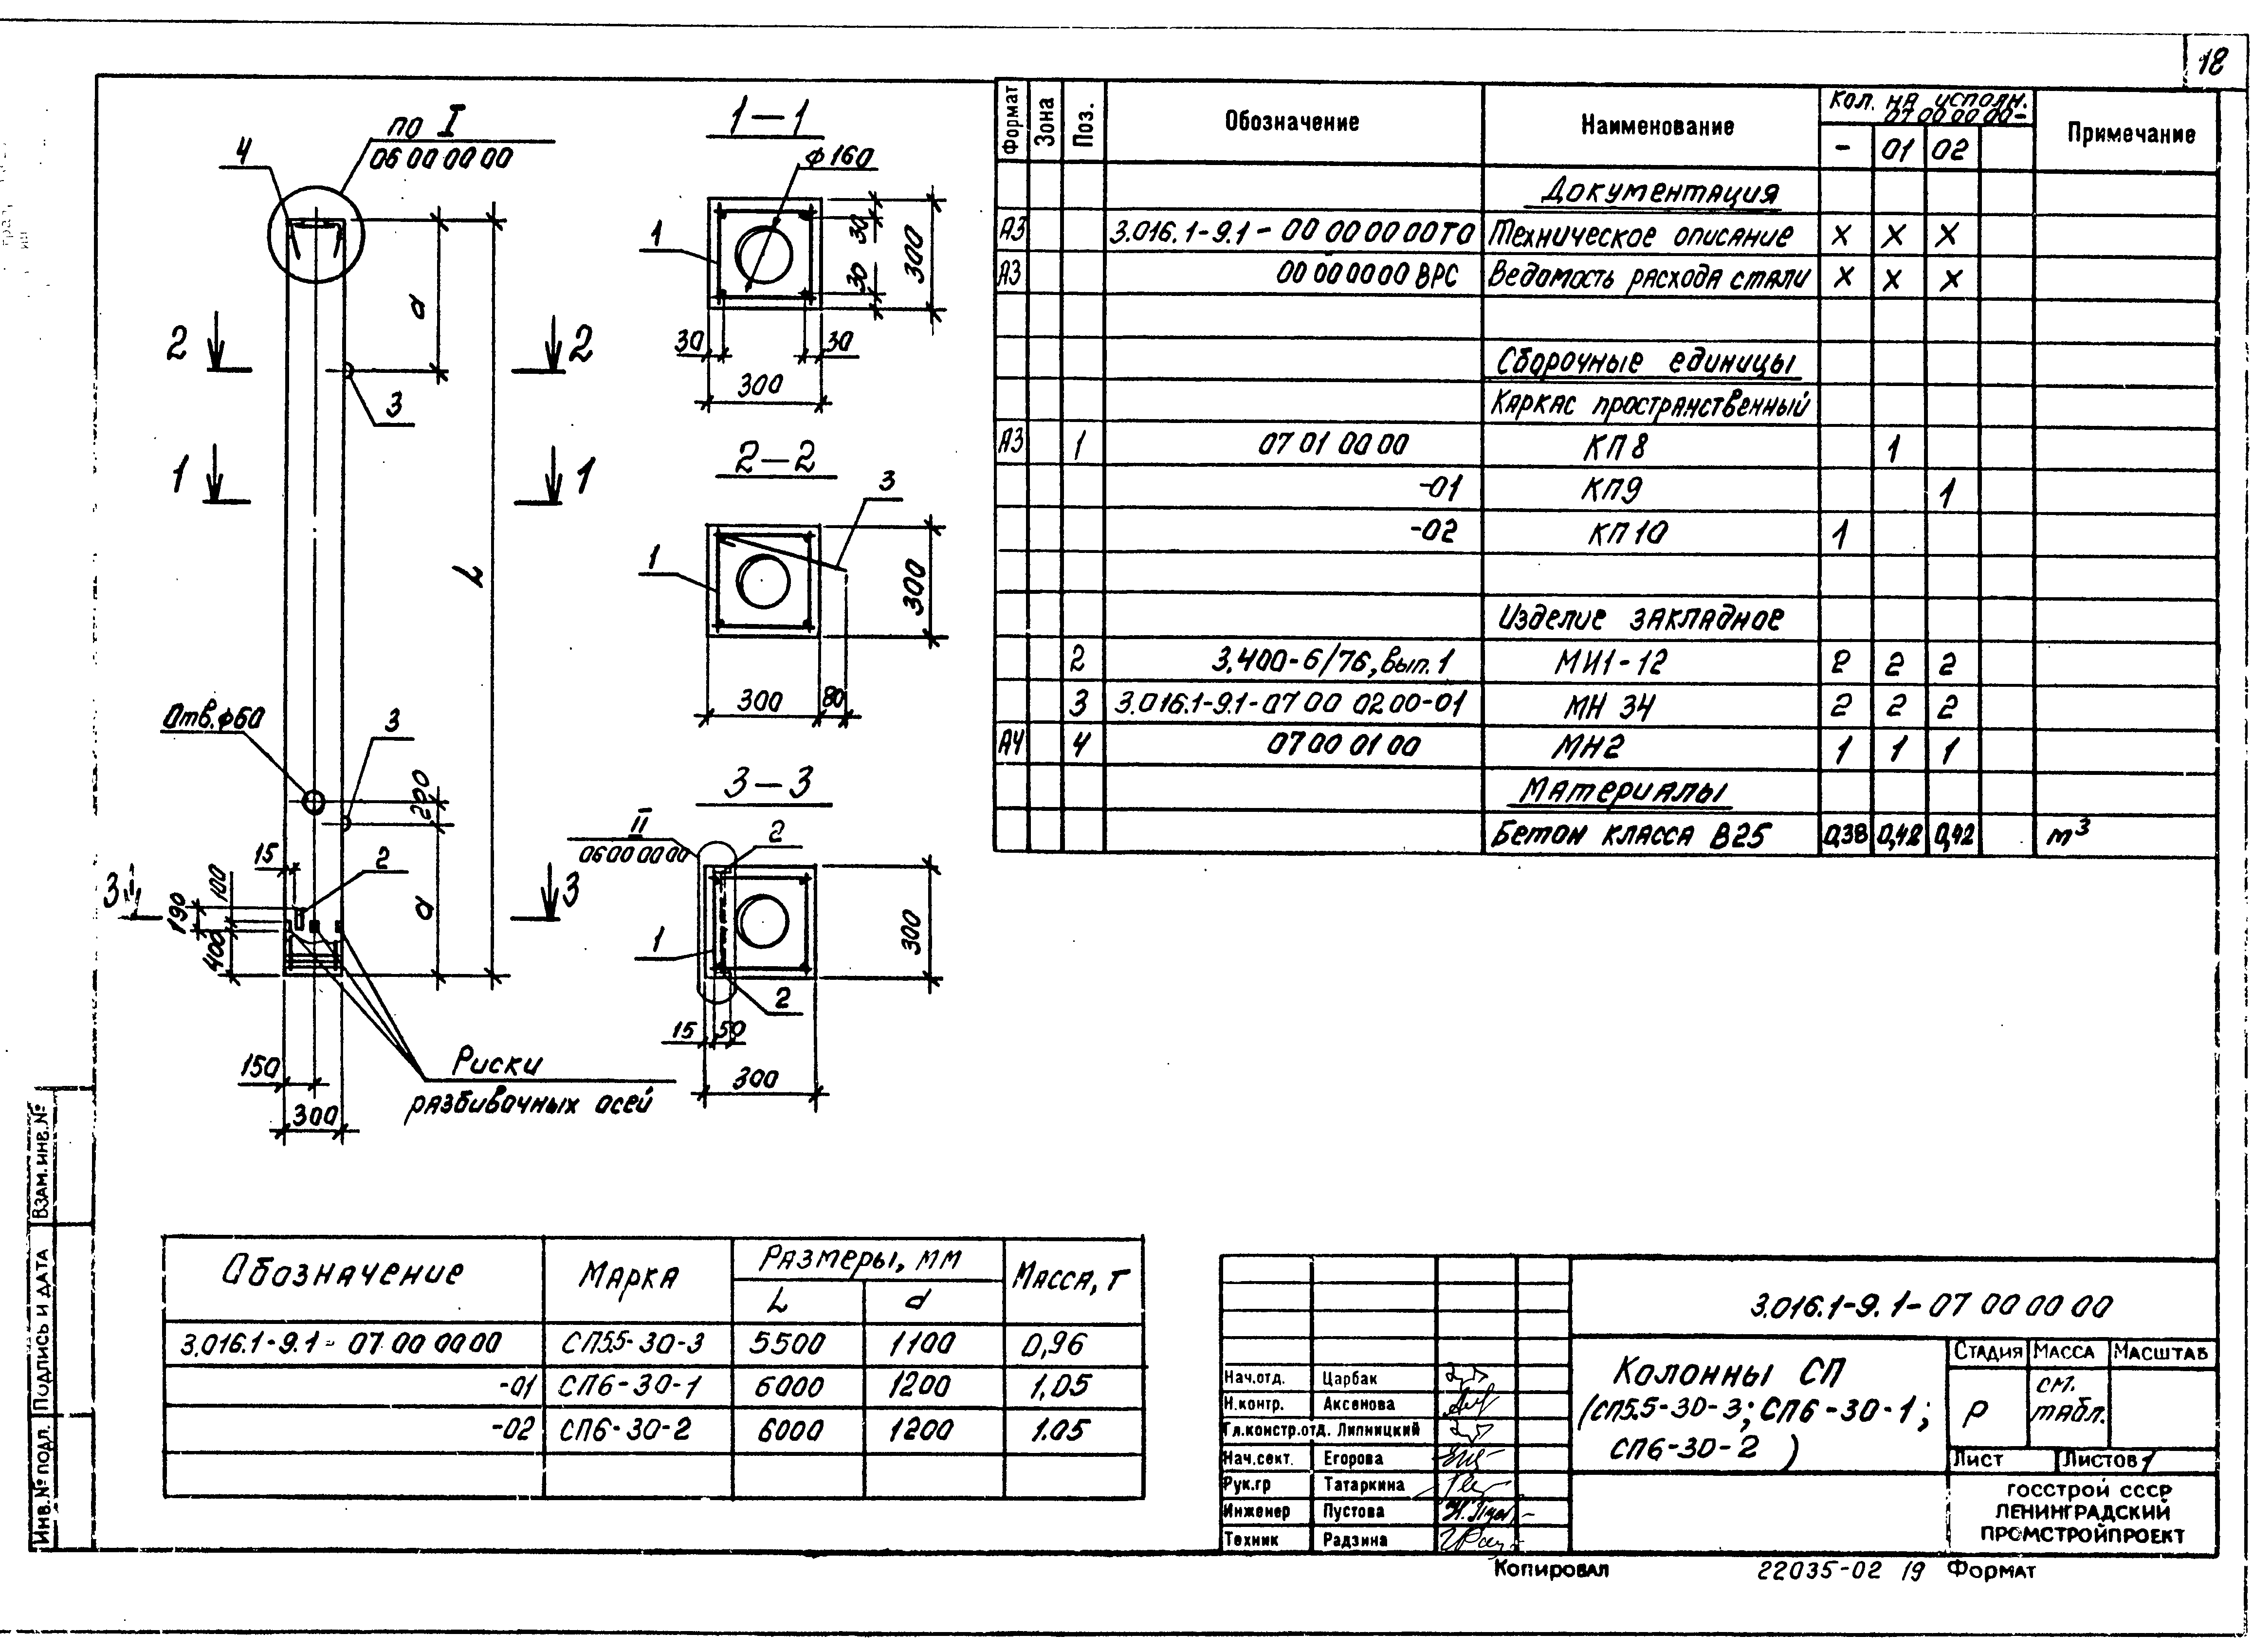 18
по I
06 00 00 00
4
2
2
3
1
1
d
L
Отв.ф60
3
200
15
2
3
3
100
190
400
d
150
300
Риски
разбивочных осей
1-1
ф160
1
30
30
300
30
30
300
2-2
3
1
300
300
80
3-3
II
06 00 00 00
2
1
2
300
15
50
300
Формат Зона Поз. Обозначение Наименование Кол. на исполн. 07 00 00 00- Примечание
- 01 02
Документация
А3 3.016.1-9.1-00 00 00 00 ТО Техническое описание х х х
А3 00 00 00 00 ВРС Ведомость расхода стали х х х
Сборочные единицы
Каркас пространственный
А3 1 07 01 00 00 КП 8 1
-01 КП9 1
-02 КП 10 1
Изделие закладное
2 3.400-6/76, вып.1 МИ1-12 2 2 2
3 3.016.1-9.1-07 00 02 00-01 МН 34 2 2 2
А4 4 07 00 01 00 МН2 1 1 1
Материалы
Бетон класса В25 0,38 0,42 0,42 м³
Обозначение Марка Размеры, мм Масса, т
L d
3.016.1-9.1-07 00 00 00 СП5.5-30-3 5500 1100 0,96
-01 СП6-30-1 6000 1200 1,05
-02 СП6-30-2 6000 1200 1.05
3.016.1-9.1-07 00 00 00
Колонны СП
(СП5.5-30-3; СП6-30-1;
СП6-30-2)
Стадия Масса Масштаб
Р см. табл.
Лист Листов 1
Нач.отд. Царбак
Н.контр. Аксенова
Гл.констр.отд. Липницкий
Нач.сект. Егорова
Рук.гр Татаркина
Инженер Пустова
Техник Радзина
ГОССТРОЙ СССР
ЛЕНИНГРАДСКИЙ
ПРОМСТРОЙПРОЕКТ
Копировал 22035-02 19 Формат
Взам.инв.№
Подпись и дата
Инв.№ подл.